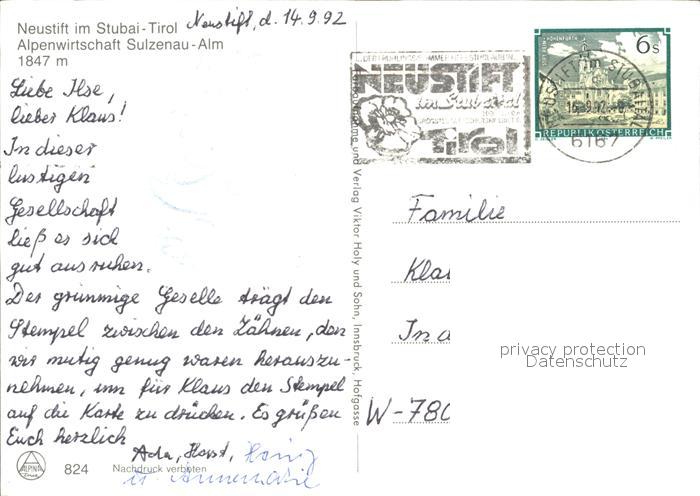 Neustift im Stubai-Tirol
Alpenwirtschaft Sulzenau-Alm
1847 m
Neustift, d. 14.9.92
Liebe Ilse,
lieber Klaus!
In dieser
lustigen
Gesellschaft
ließ es sich
gut ausruhen.
Der grimmige Geselle trägt den
Stempel zwischen den Zähnen, den
wir mutig genug waren herauszu-
nehmen, um für Klaus den Stempel
auf die Karte zu drücken. Es grüßen
Euch herzlich
Ada, Horst,
u. Annemarie
ALPINA
824
Nachdruck verboten
und Verlag Viktor Holy und Sohn, Innsbruck, Hofgasse
NEUSTIFT
im Stubaital
Tirol
NEUSTIFT IM STUBAITAL
6167
6 s
REPUBLIK ÖSTERREICH
Familie
Kla
In d
W-780
privacy protection
Datenschutz